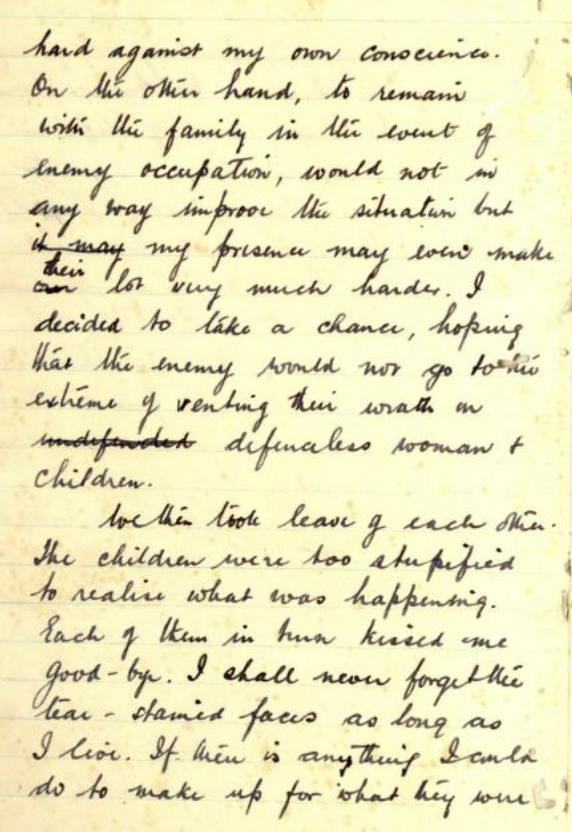 hard against my own conscience.
On the other hand, to remain
with the family in the event of
enemy occupation, would not in
any way improve the situation but
it may my presence may even make
their
our lot very much harder. I
decided to take a chance, hoping
that the enemy would not go to the
extreme of venting their wrath on
undefended defenceless woman &
children.
We then took leave of each other.
The children were too stupified
to realise what was happening.
Each of them in turn kissed me
good-bye. I shall never forget the
tear-stained faces as long as
I live. If there is anything I could
do to make up for what they were